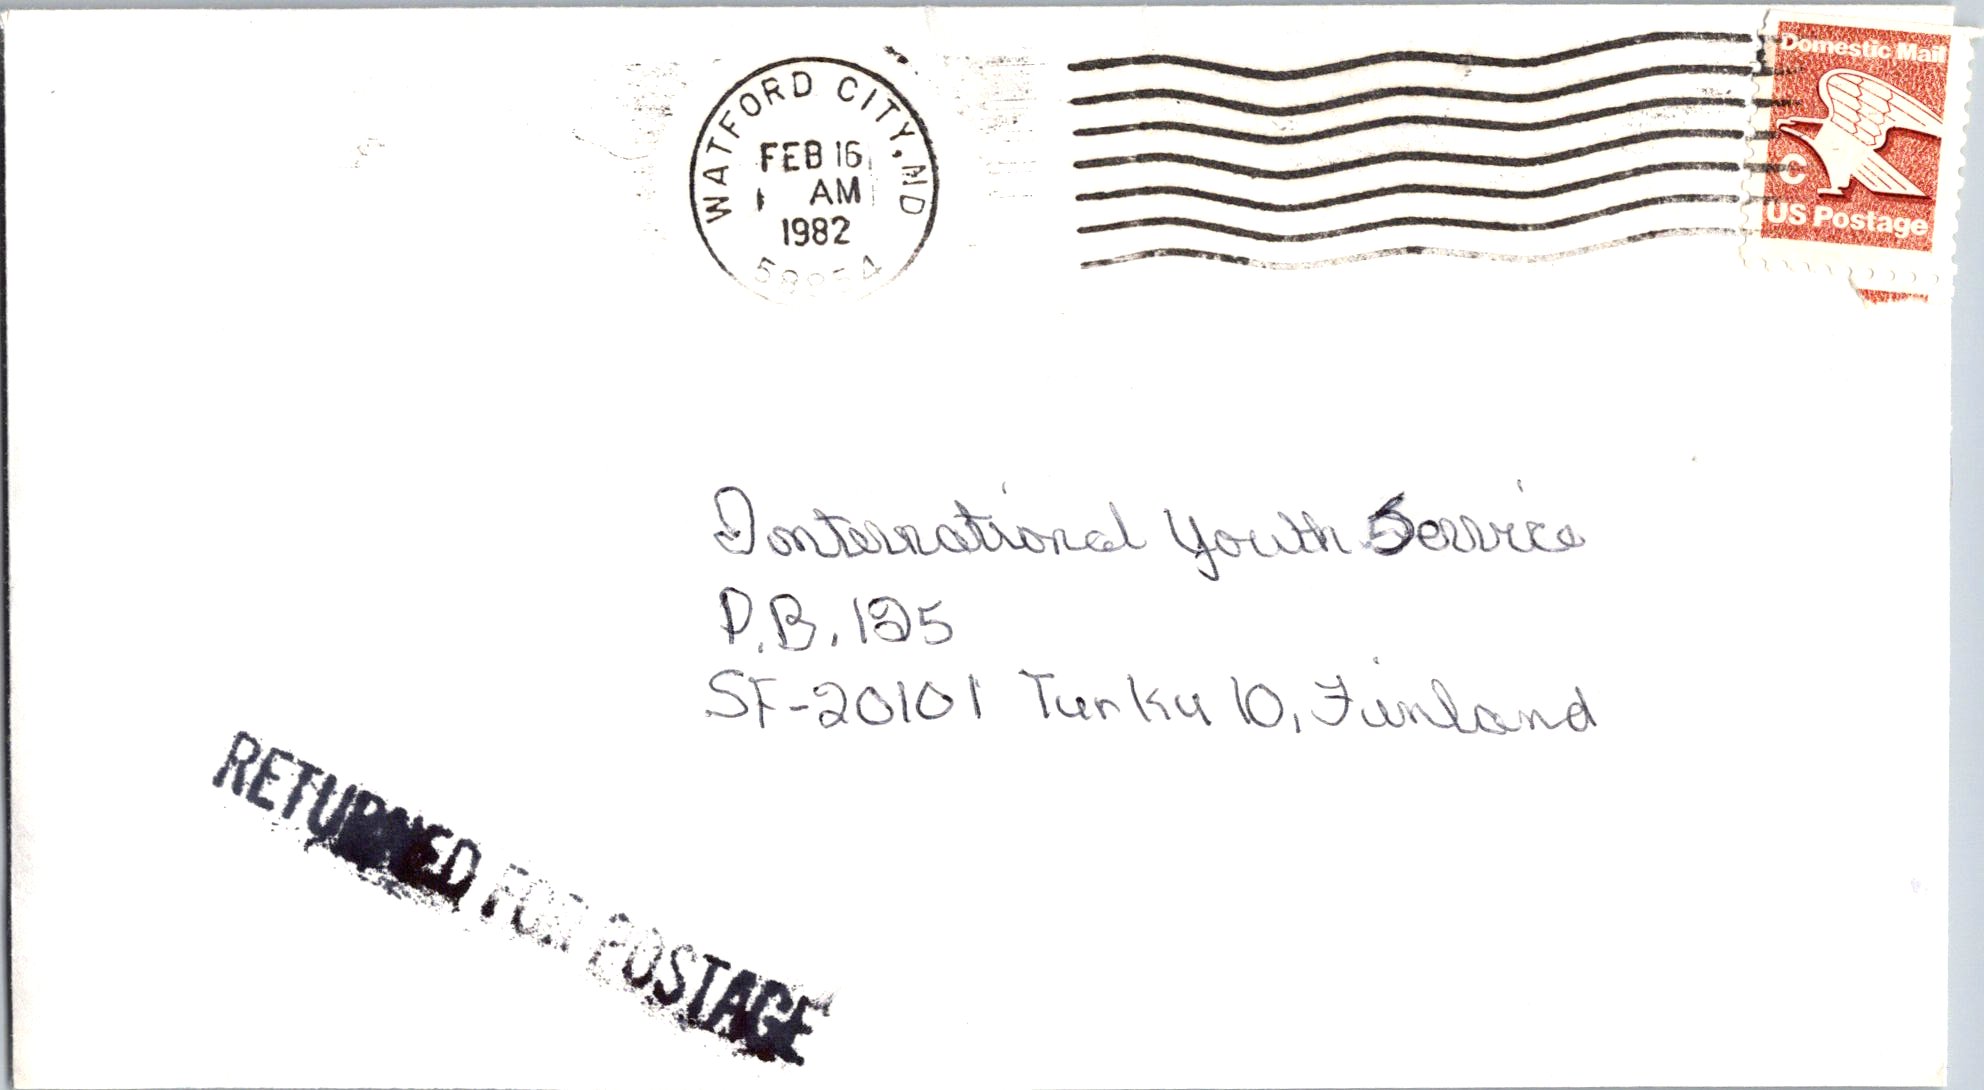 WATFORD CITY, ND
FEB 16
AM
1982
Domestic Mail
C
US Postage
International Youth Service
P.B. 125
SF-20101 Turku 10, Finland
RETURNED FOR POSTAGE